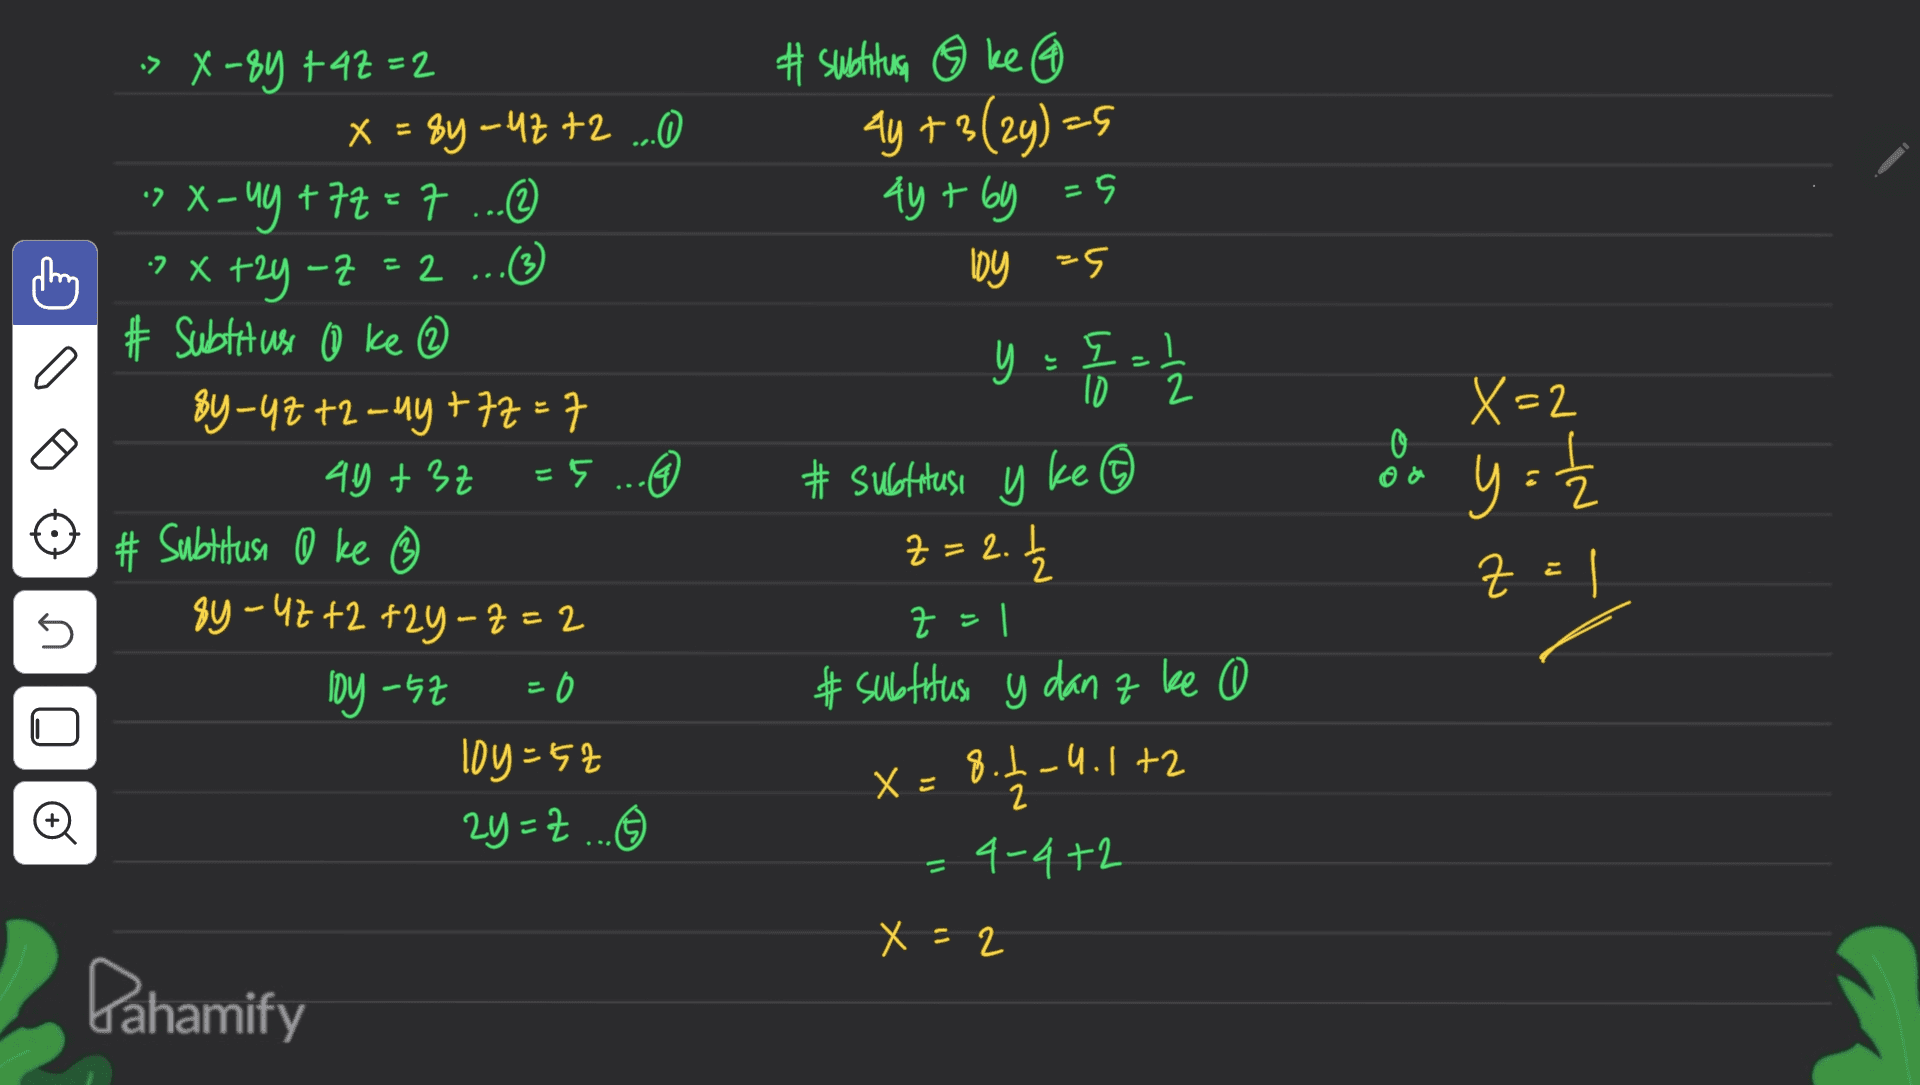 .> x - 8y + 4z = 2
x = 8y - 4z + 2 ...①
.> x - 4y + 7z = 7 ...②
.> x + 2y - z = 2 ...③
# Subtitusi ① ke ②
8y - 4z + 2 - 4y + 7z = 7
4y + 3z = 5 ...④
# Subtitusi ① ke ③
8y - 4z + 2 + 2y - z = 2
10y - 5z = 0
10y = 5z
2y = z ...⑤
# subtitusi ⑤ ke ④
4y + 3(2y) = 5
4y + 6y = 5
10y = 5
y = 5/10 = 1/2
# subtitusi y ke ⑤
z = 2. 1/2
z = 1
# subtitusi y dan z ke ①
x = 8. 1/2 - 4.1 + 2
= 4 - 4 + 2
x = 2
∴ x = 2
y = 1/2
z = 1
Pahamify